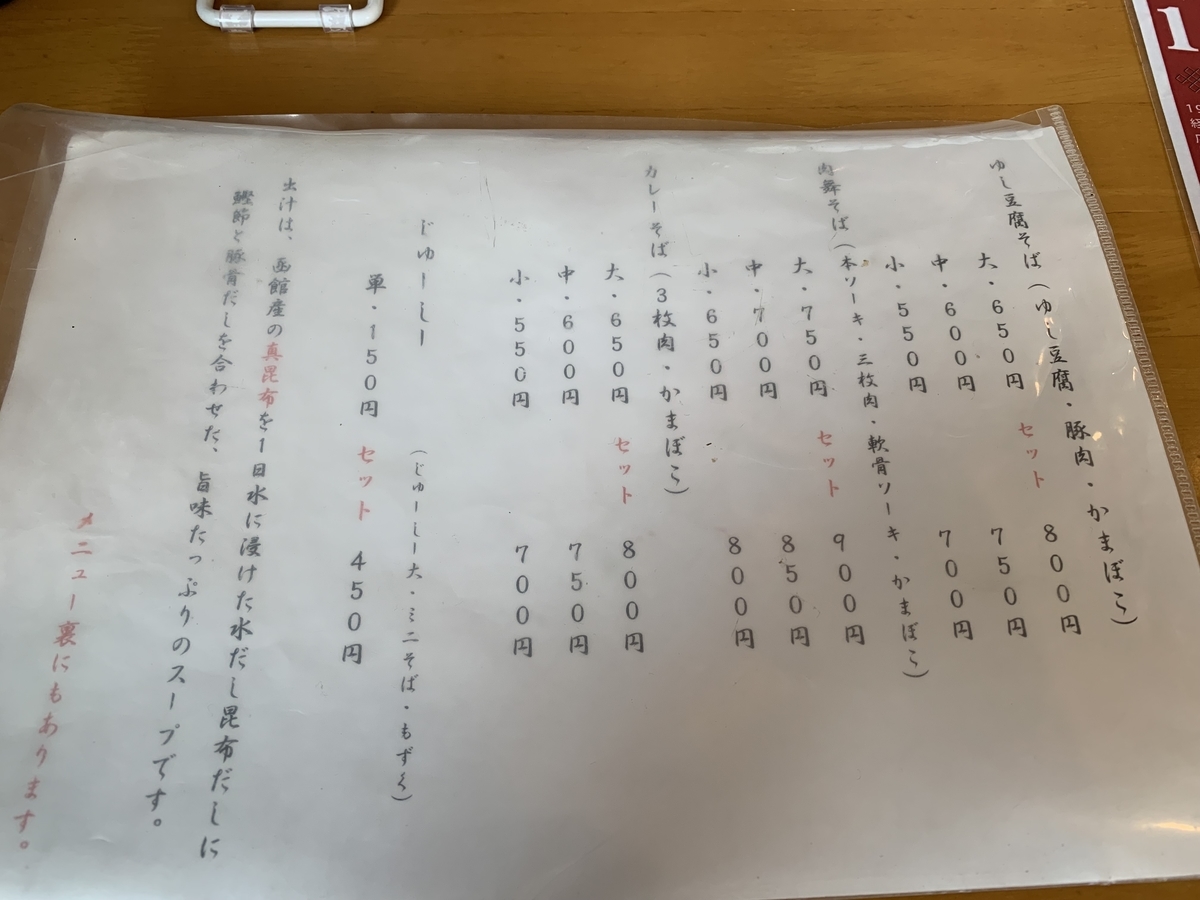 ゆし豆腐そば（ゆし豆腐・豚肉・かまぼこ）
大・650円 セット 800円
中・600円 750円
小・550円 700円
肉舞そば（本ソーキ・三枚肉・軟骨ソーキ・かまぼこ）
大・750円 セット 900円
中・700円 850円
小・650円 800円
カレーそば（3枚肉・かまぼこ）
大・650円 セット 800円
中・600円 750円
小・550円 700円
じゅーしー（じゅーしー大・ミニそば・もずく）
単・150円 セット 450円
出汁は、函館産の真昆布を1日水に浸けた水だし昆布だしに
鰹節と豚骨だしを合わせた、旨味たっぷりのスープです。
メニュー裏にもあります。
1